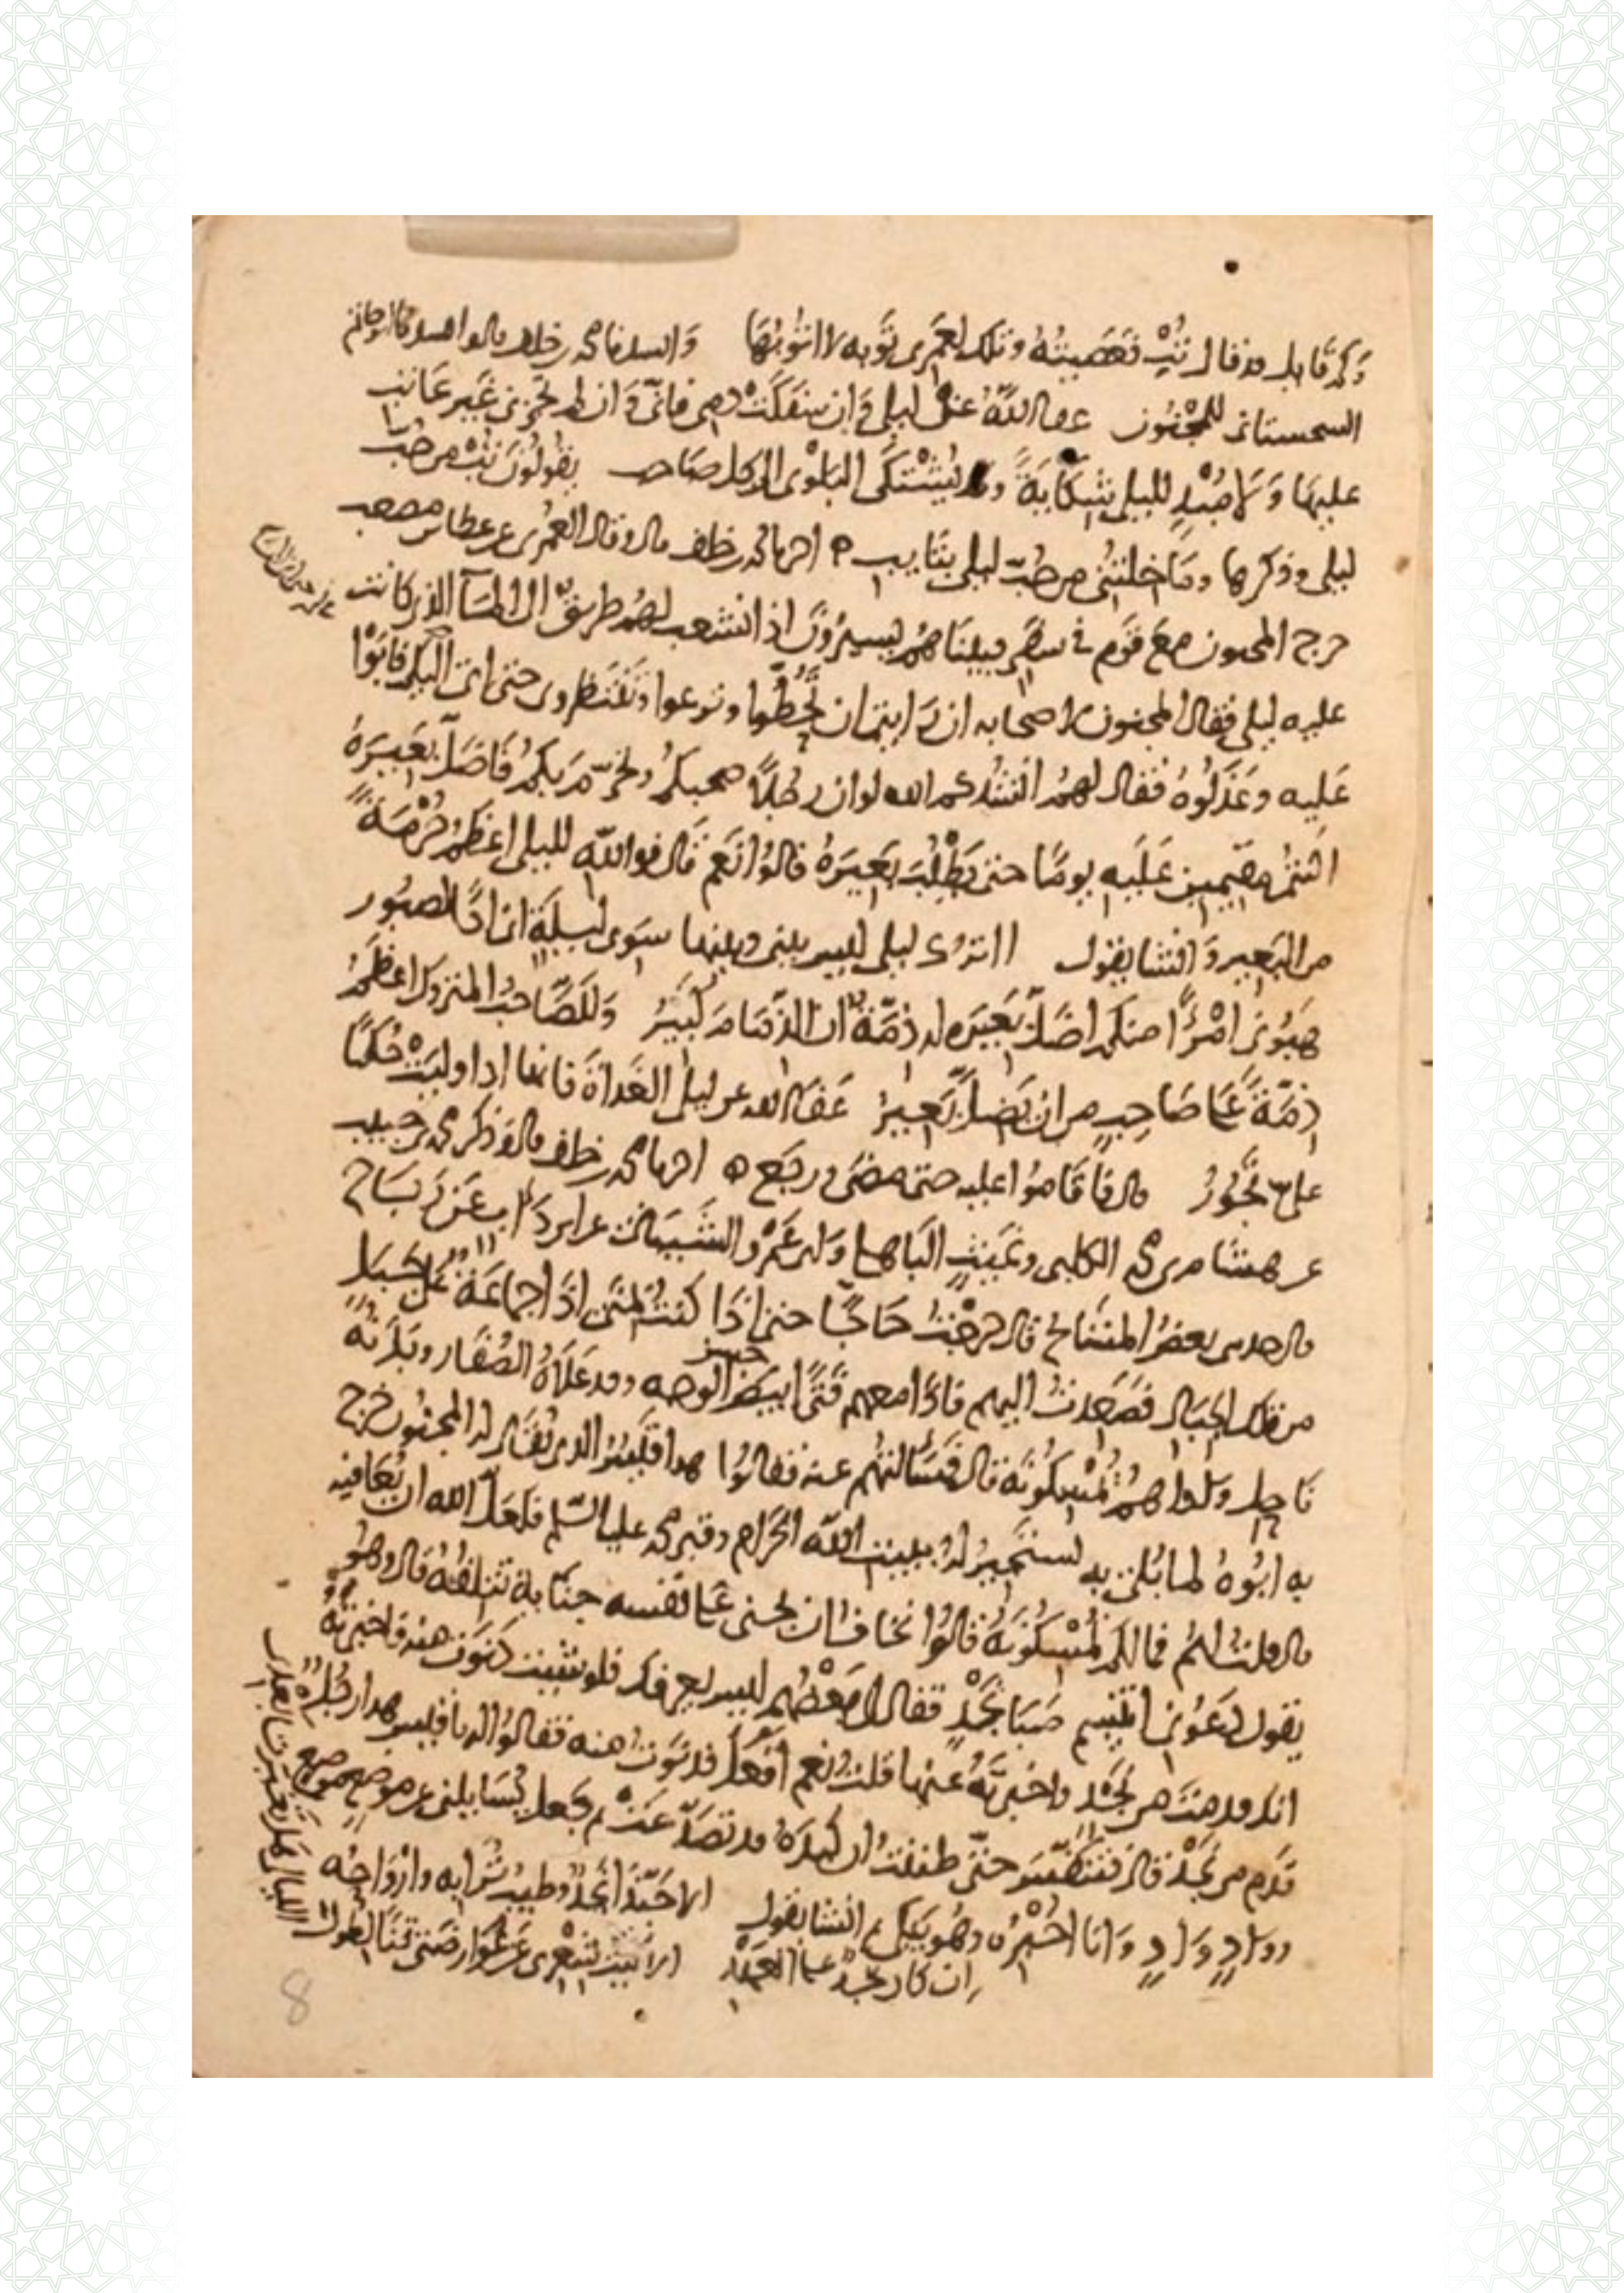 وَكم قايل قد قال تُبْ فعصيته وتلك لعمرى توبه لا اتوبها وانشدنا محمد بن خلف قال وانشدنا ابو حاتم
السجستانى للمجنون عفا الله عن ليلى وان سفكت دمى فانى وان لم تجزنى غير عاتب
عليها ولا مُبْدٍ لليلى شكايةً وقد يُشتكى البلوى الى كل صاحب يقولون تُبْ من حُبّ
ليلى وذكرها وما خلتنى من حُبّ ليلى بتايب ه اخبرنا محمد بن خلف قال وقال العمرى عن عطا بن مصعب
خرج المجنون مع قوم فى سفر فبينا هم يسيرون اذ انشعب لهم طريق الى الما الذى كانت
عليه ليلى فقال المجنون لاصحابه ان رايتم ان تحطوا وترعوا وتنتظرونى حتى اتى اليكم فابَوْا
عليه وعذلوه فقال لهم انشدكم الله لو ان رجلا صحبكم وتحرّم بكم فاضلّ بعيره
اكنتم مقيمين عليه يوما حتى يطلب بعيره قالوا نعم قال فوالله لليلى اعظم حُرْمةً
من البعير وانشا يقول ااترك ليلى ليس بينى وبينها سوى ليلة انى اذًا لصبور
هبونى امْرَأً منكم اضلّ بعيره له ذمّة ان الذمام كبير وللصاحب المتروك اعظم
ذمّة على صاحبٍ من ان يضلّ بعير عفا الله عن ليلى الغداة فانها اذا وليتْ حُكمًا
علىّ تجور قال فاقاموا عليه حتى مضى ورجع ه اخبرنا محمد بن خلف قال وذكر محمد بن حبيب
عن هشام بن محمد الكلبى و الباهلى وابى عمرو الشيبانى عن ابن داب عن رباح
قال حدثنى بعض المشايخ قال خرجتُ حاجّا حتى اذا كنتُ بمنى اذا جماعة على جبل
من تلك الجبال فصعدت اليهم فاذا معهم فتًى ابيض حسن الوجه وقد علاه الصُفار وبدنه
ناحل وهم يُمْسكونه قال فسالتهم عنه فقالوا هذا قيس الذى يقال له المجنون خرج
به ابوه لما بُلى به يستجير له ببيت الله الحرام وقبر محمد عليه السّلم فلعلّ الله ان يُعافيه
قال قلت لهم فما لكم تُمْسكونه قالوا نخاف ان يجنى على نفسه جناية تتلفه قال وهو
يقول دعونى اتنسم صبا نَجْدٍ فقال لى بعضهم ليس يعرفك فلو شيت دنوت منه فاخبرته
انك قدمت من نَجْدٍ واخبرته عنها قلت نعم افعل فدنوت منه فقالوا له يا قيس هذا رجُل
قدم من نَجْد قال فتنفّس حتّى ظننت ان كبده قد تصدّعت ثم جعل يُسايلنى عن موضع موضع
ووادٍ وَادٍ وَانا اخبره وهو يبكى ثم انشا يقول الا حبّذا نَجْدٌ وطيب ترابه وارواحه
ان كان نجدٌ على العهد الا ليت شعرى عن عوارضتى قنا لطول
الليالى هل تغيّرتا بعدى